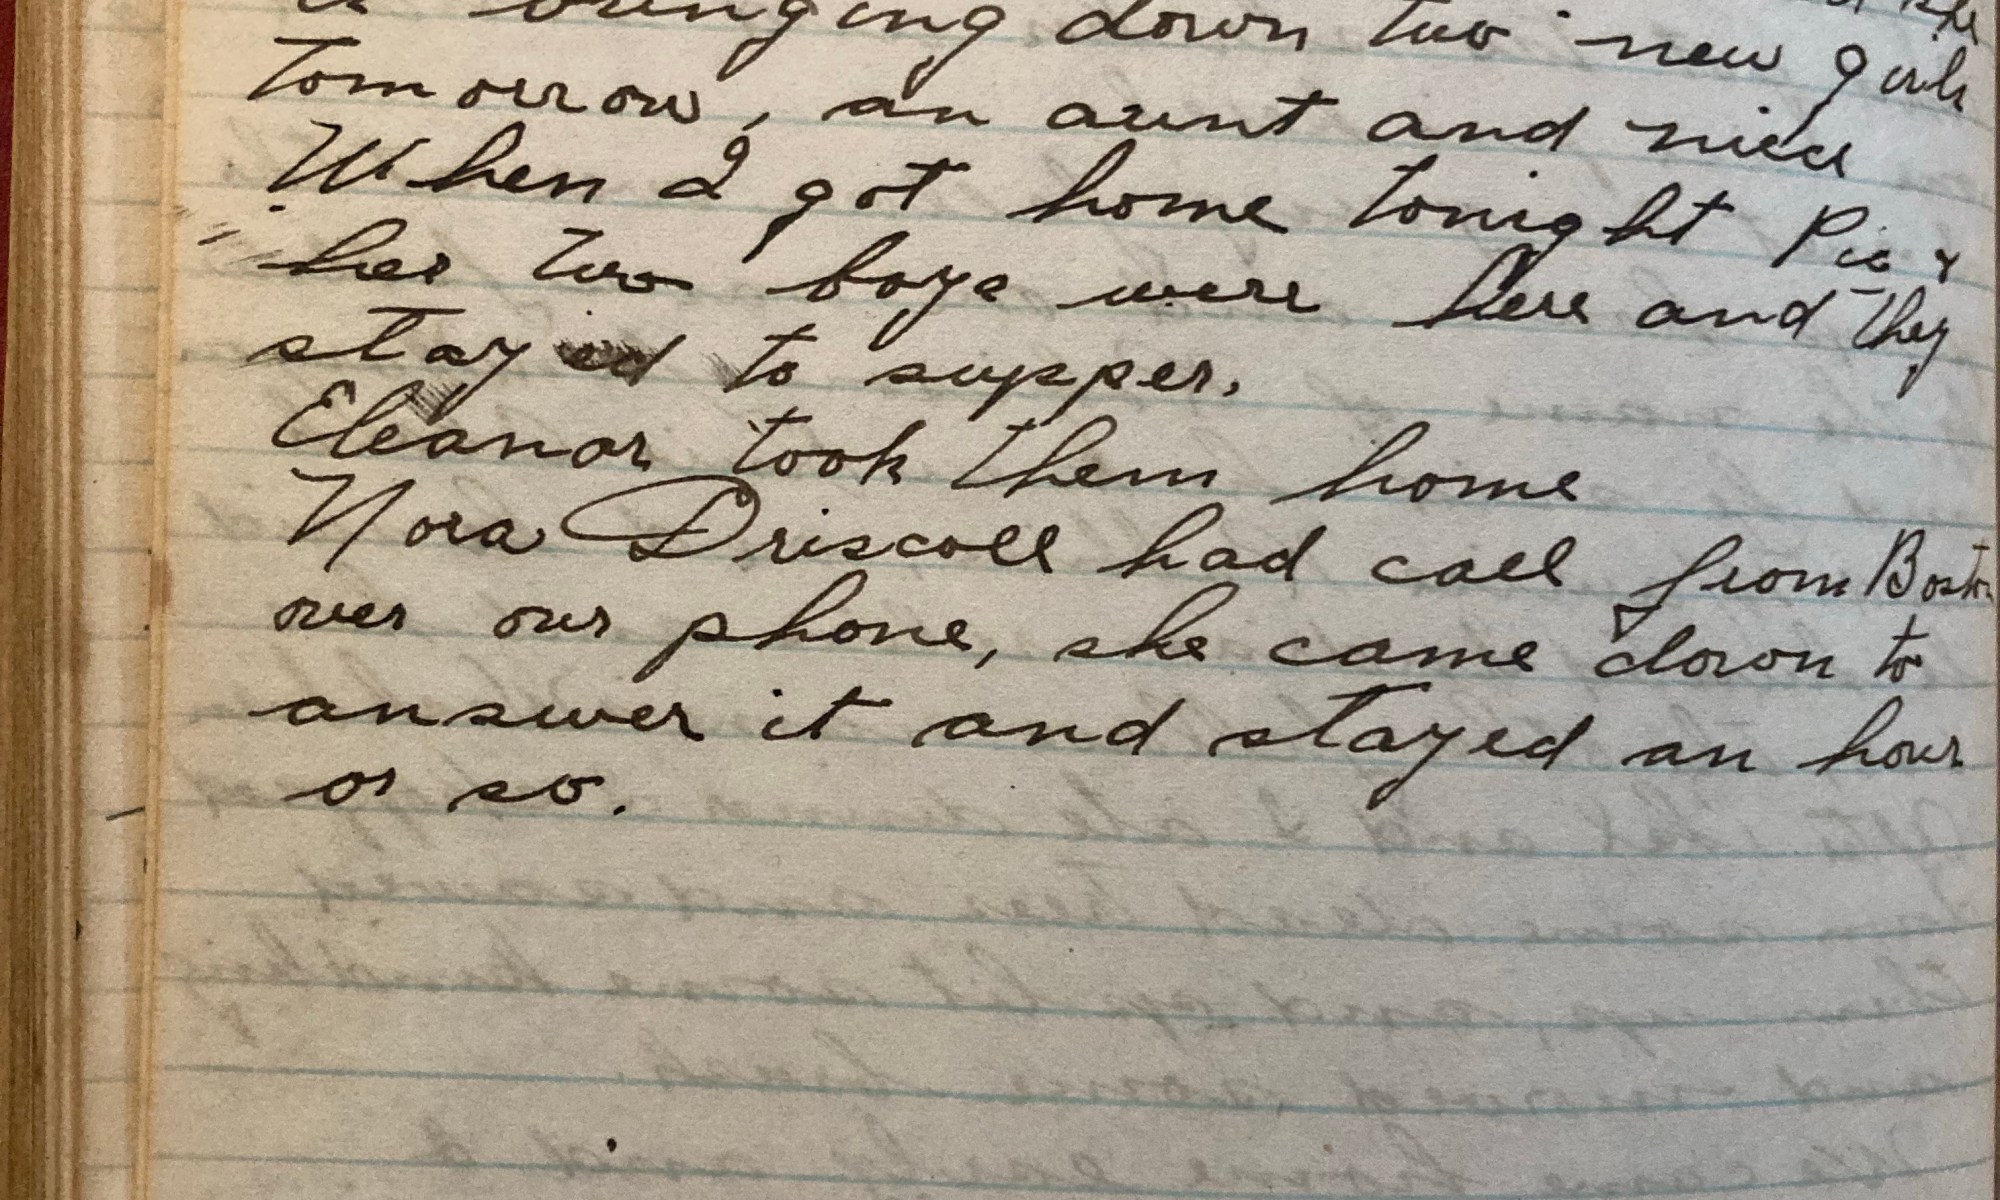 is bringing down two new girls
tomorrow, an aunt and niece
When I got home tonight Pie &
her two boys were here and they
stayed to supper.
Eleanor took them home
Nora Driscoll had call from Boston
over our phone, she came down to
answer it and stayed an hour
or so.